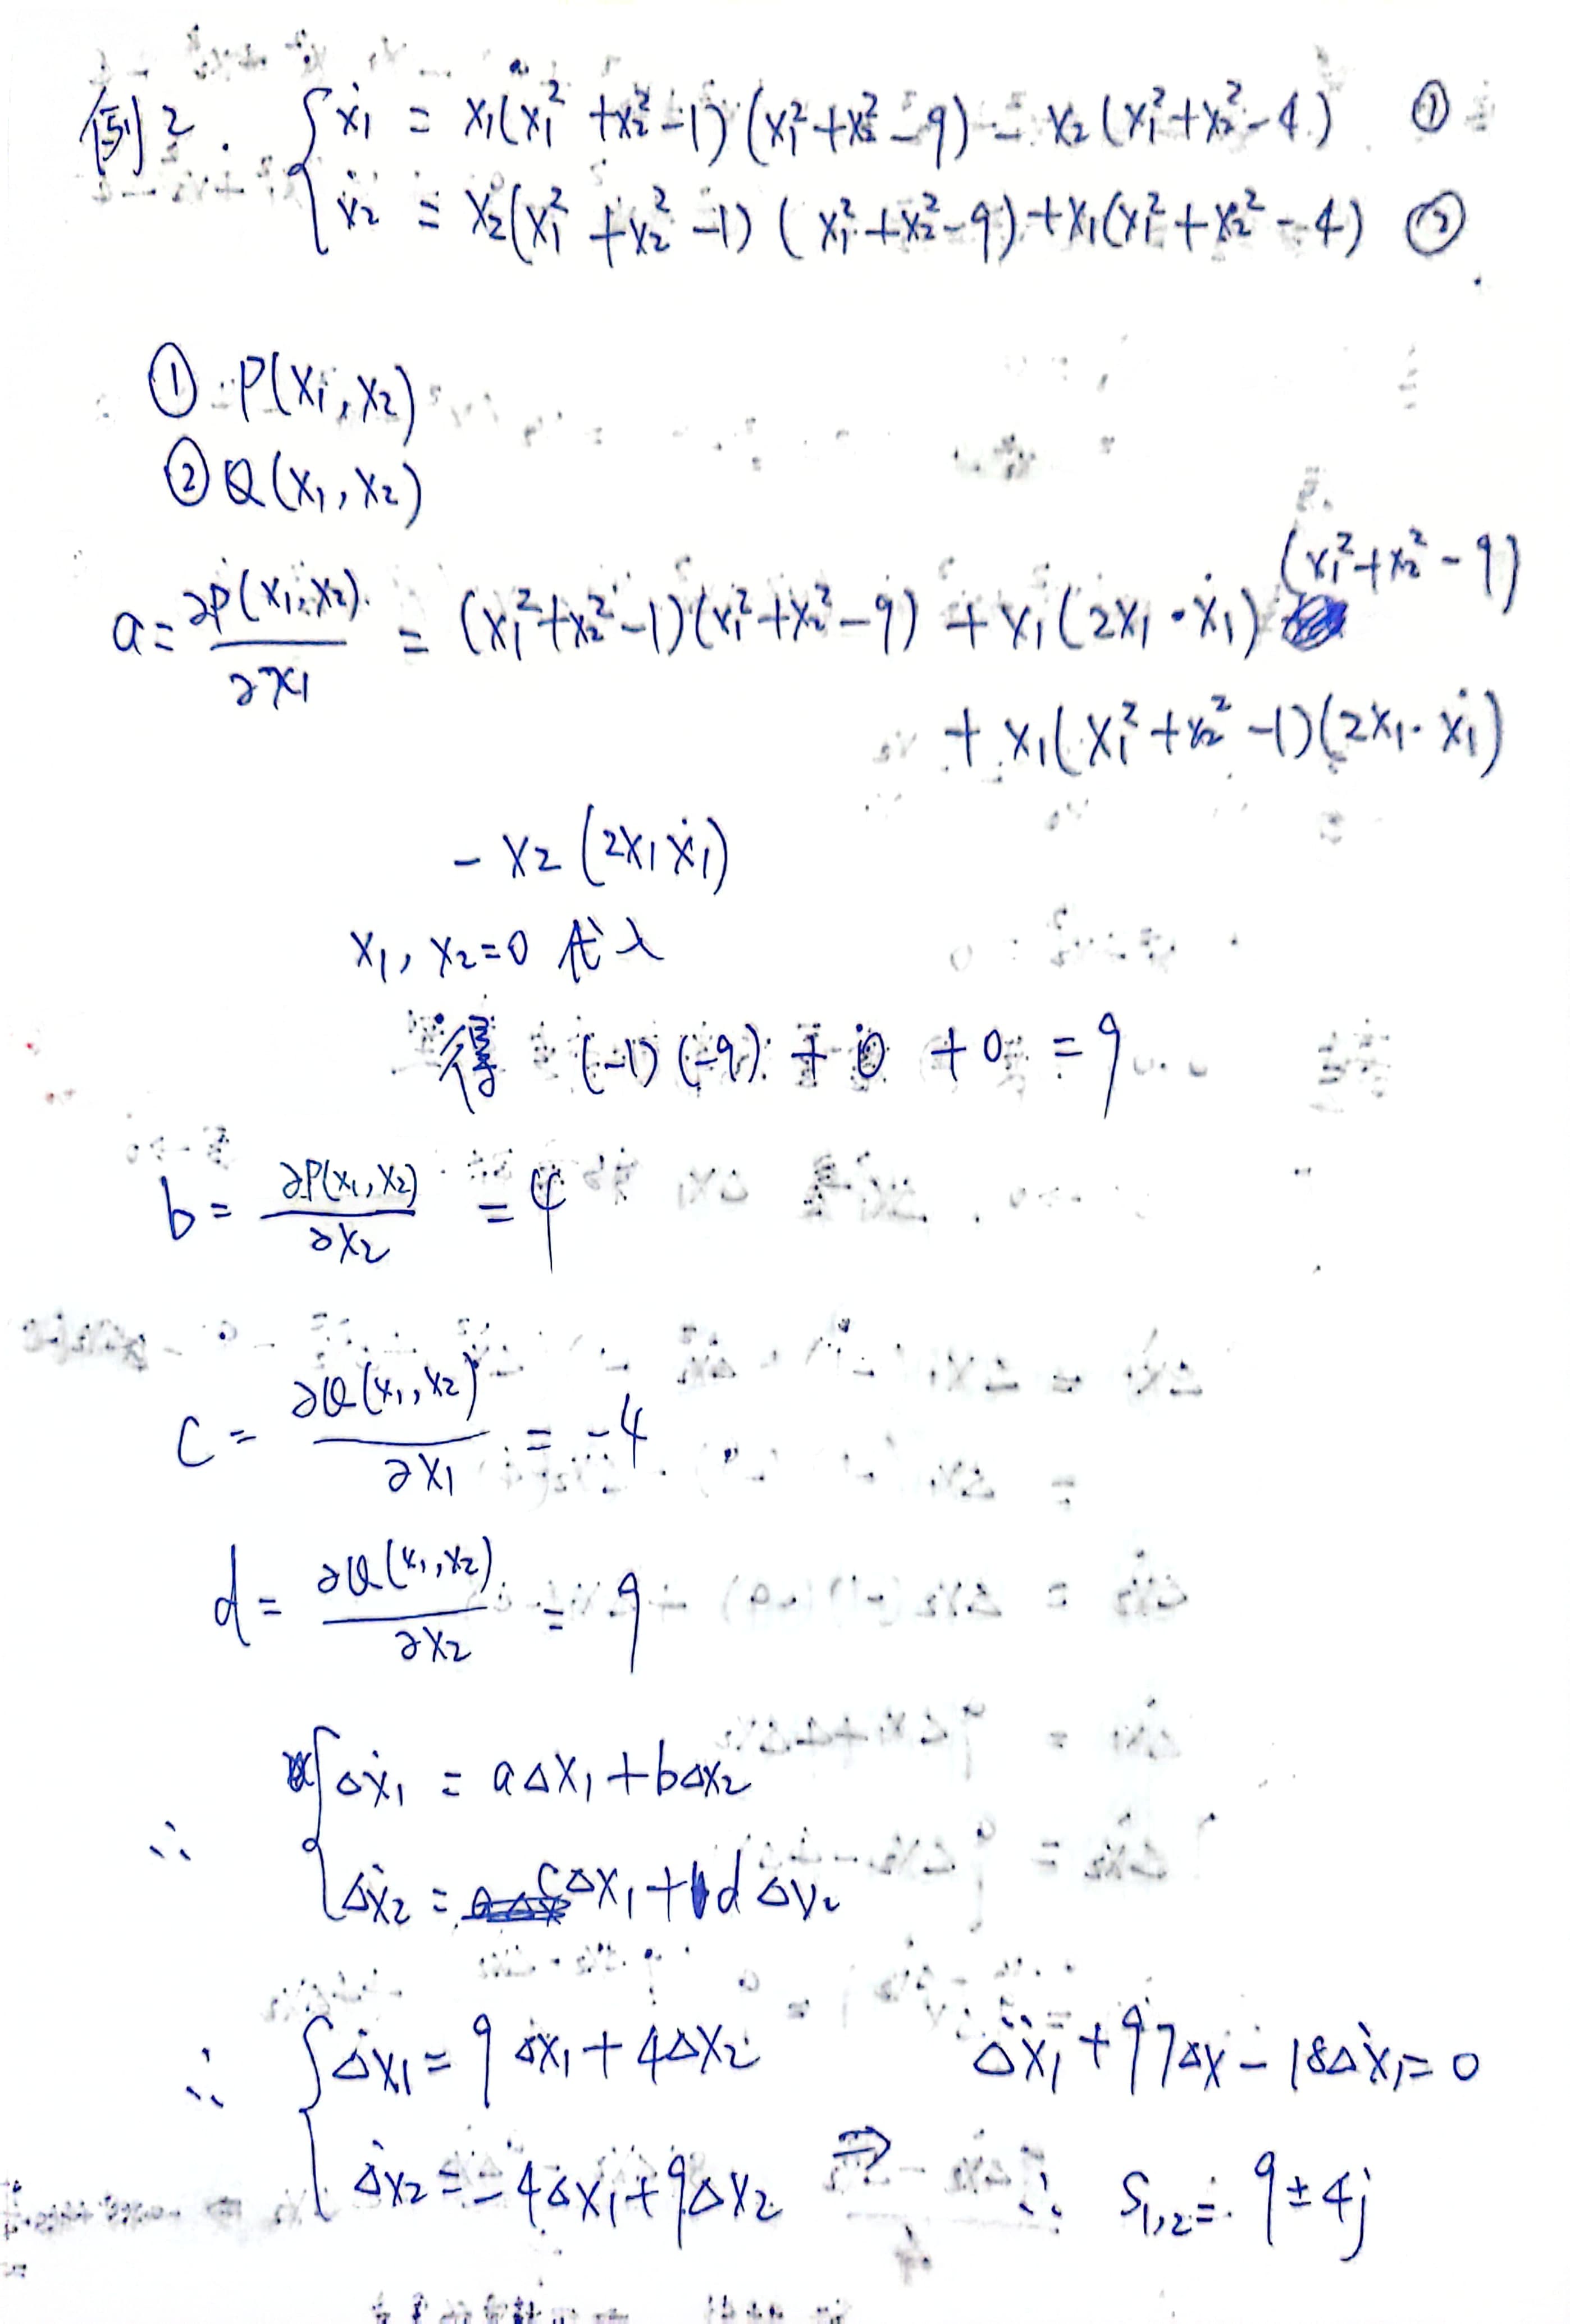 例2. { ẋ₁ = x₁(x₁² + x₂² - 1)(x₁² + x₂² - 9) - x₂(x₁² + x₂² - 4) ①
ẋ₂ = x₂(x₁² + x₂² - 1)(x₁² + x₂² - 9) + x₁(x₁² + x₂² - 4) ②
① P(x₁, x₂)
② Q(x₁, x₂)
a = ∂P(x₁, x₂)/∂x₁ = (x₁² + x₂² - 1)(x₁² + x₂² - 9) + x₁(2x₁·ẋ₁)(x₁² + x₂² - 9)
+ x₁(x₁² + x₂² - 1)(2x₁·ẋ₁)
- x₂(2x₁ẋ₁)
x₁, x₂ = 0 代入
得 (-1)(-9) + 0 + 0 = 9
b = ∂P(x₁, x₂)/∂x₂ = 4
c = ∂Q(x₁, x₂)/∂x₁ = -4
d = ∂Q(x₁, x₂)/∂x₂ = 9
∴ { Δẋ₁ = aΔx₁ + bΔx₂
Δẋ₂ = cΔx₁ + dΔx₂
∴ { Δẋ₁ = 9Δx₁ + 4Δx₂ Δẍ₁ + 97Δx - 18Δẋ₁ = 0
Δẋ₂ = -4Δx₁ + 9Δx₂ ⇒ ∴ S₁,₂ = 9 ± 4j